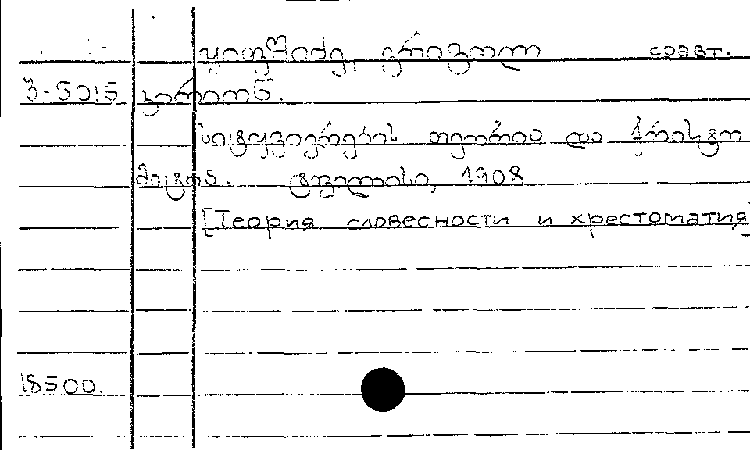 ყიფშიძე, გრიგოლ სоавт.
ვ-5015
სიტყვიერების თეორია და ქრისტო
მატია. ტფილისი, 1908
[Теория словесности и хрестоматия]
18500